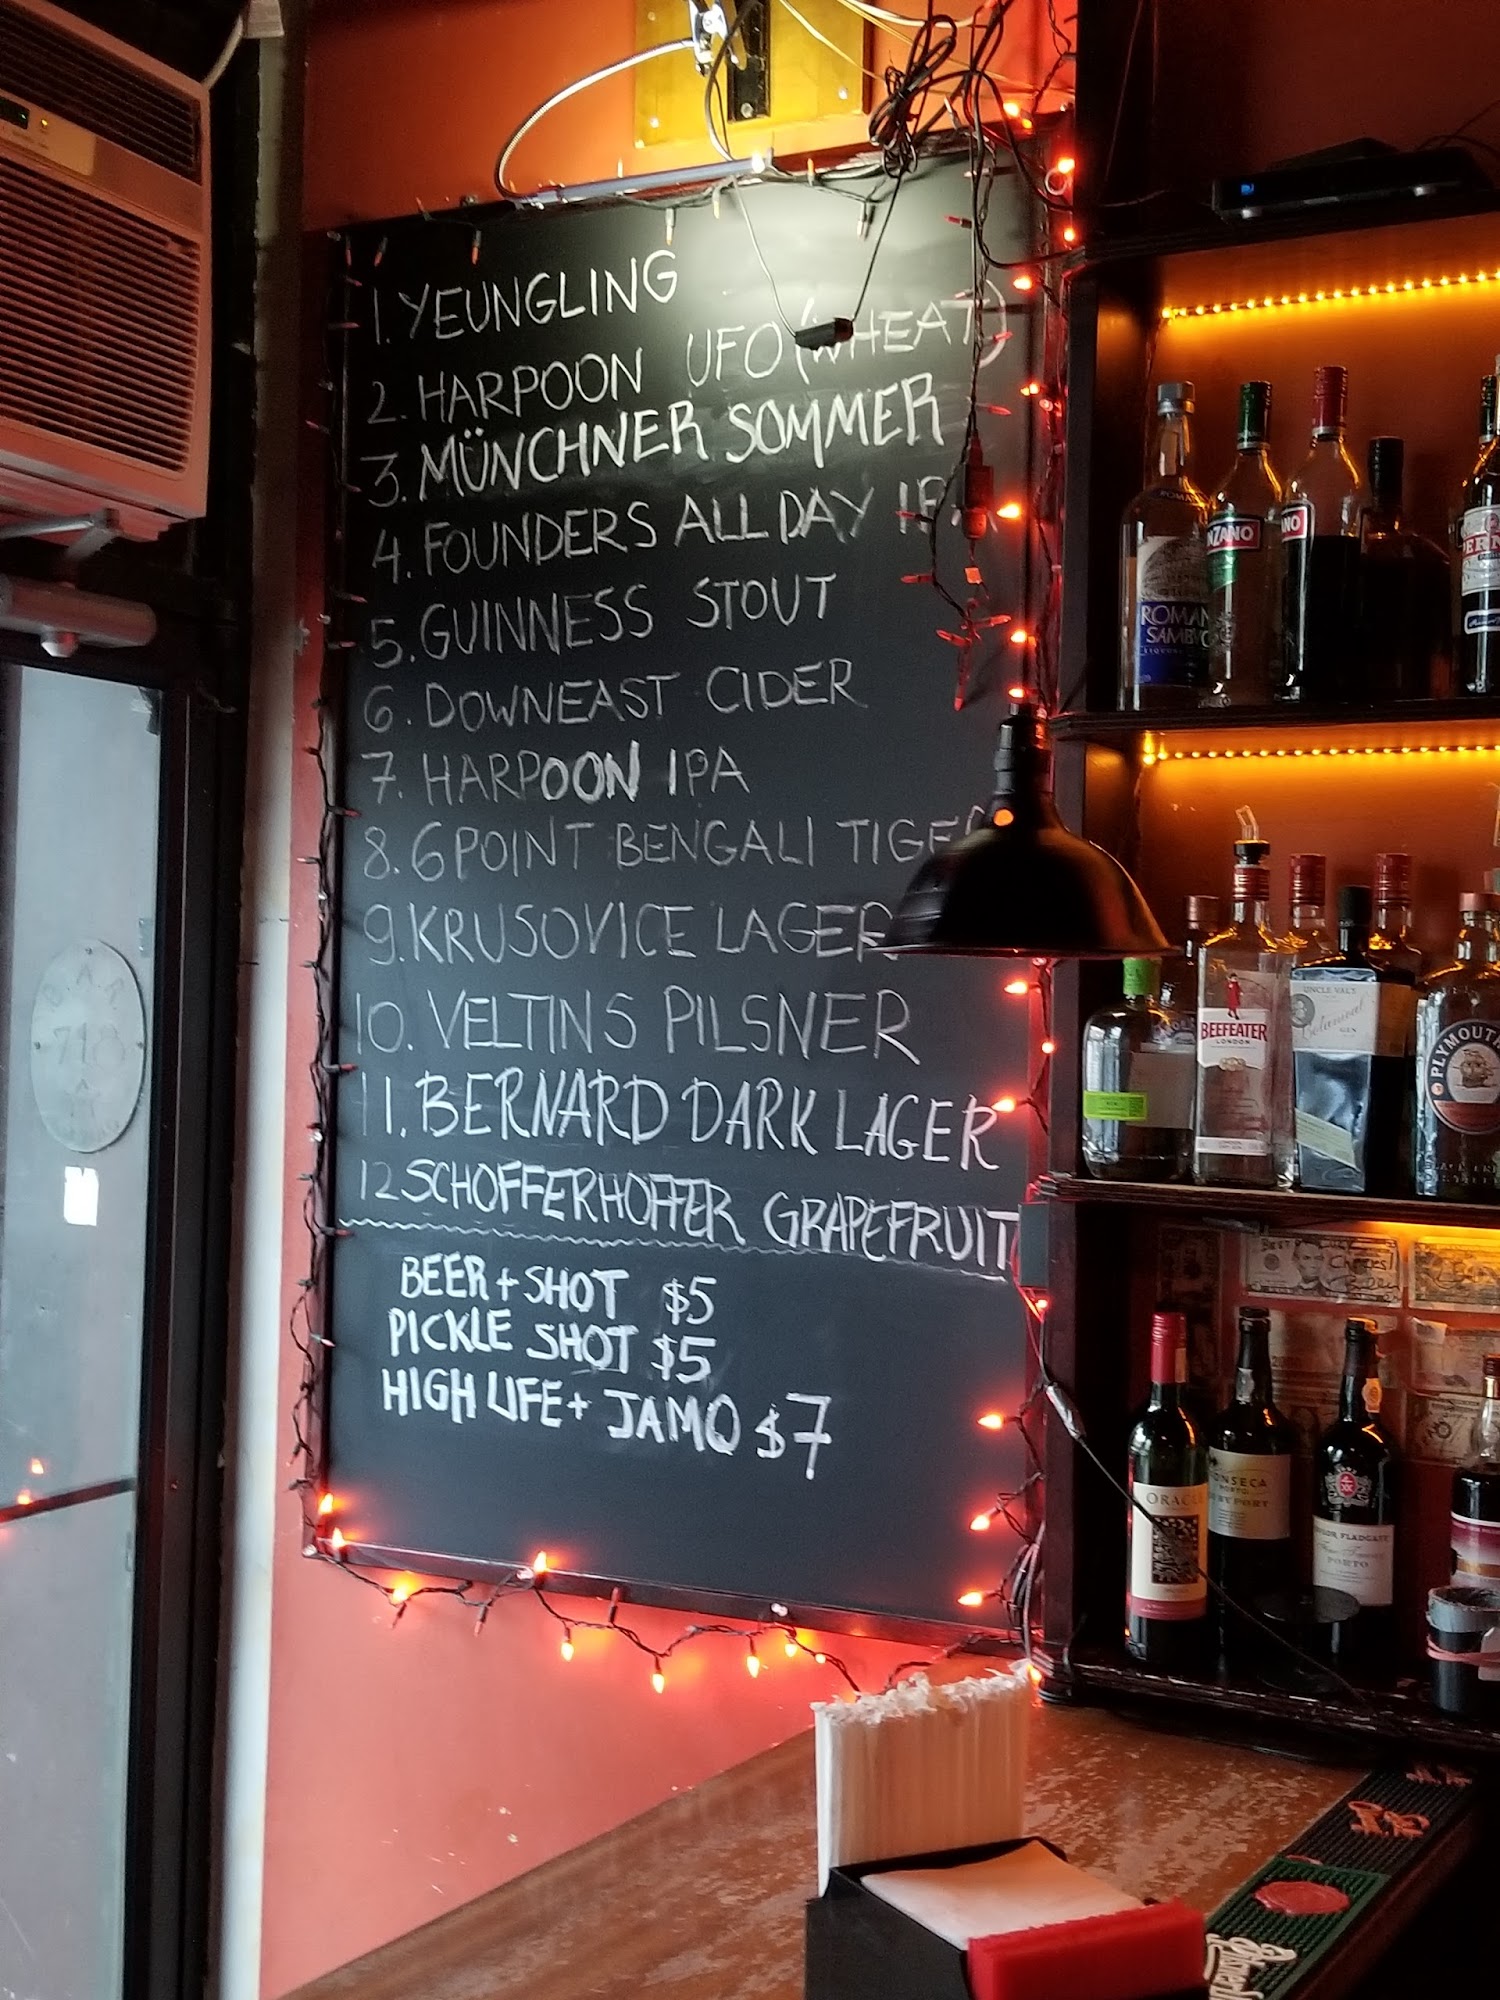 1. YEUNGLING
2. HARPOON UFO (WHEAT)
3. MÜNCHNER SOMMER
4. FOUNDERS ALL DAY IPA
5. GUINNESS STOUT
6. DOWNEAST CIDER
7. HARPOON IPA
8. 6POINT BENGALI TIGER
9. KRUSOVICE LAGER
10. VELTINS PILSNER
11. BERNARD DARK LAGER
12 SCHOFFERHOFFER GRAPEFRUIT
BEER + SHOT $5
PICKLE SHOT $5
HIGH LIFE + JAMO $7
BAR
718
NZANO
NO
ROMAN
SAMBUC
BEEFEATER
LONDON
UNCLE VAL'S
Botanical
GIN
PLYMOUTH
BEST
Cheers!
ORACL
ONSECA
PORTO
BY PORT
LOR FLADGAT
PORTO